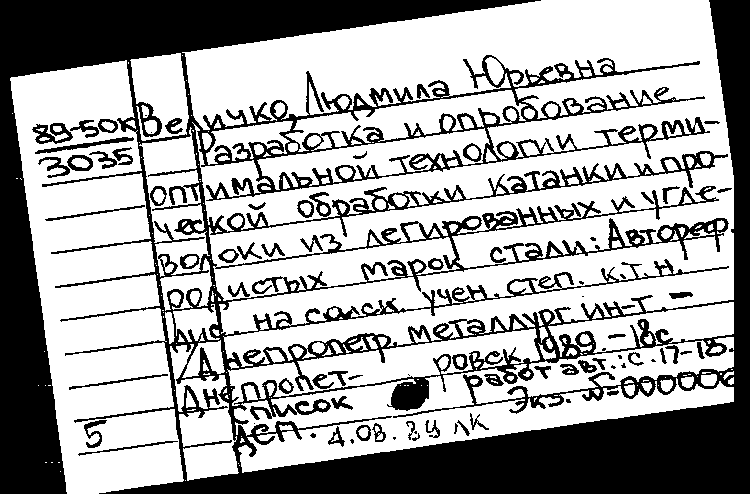 89-50к
3035
Величко, Людмила Юрьевна
Разработка и опробование
оптимальной технологии терми-
ческой обработки катанки и про-
волоки из легированных и угле-
родистых марок стали: Автореф.
дис. на соиск. учен. степ. к.т.н.
/Днепропетр. металлург. ин-т. –
Днепропет-ровск, 1989. – 18с.
список работ авт.: с. 17-18.
Деп. Экз. №=000006
5 4.08.89 ЛК